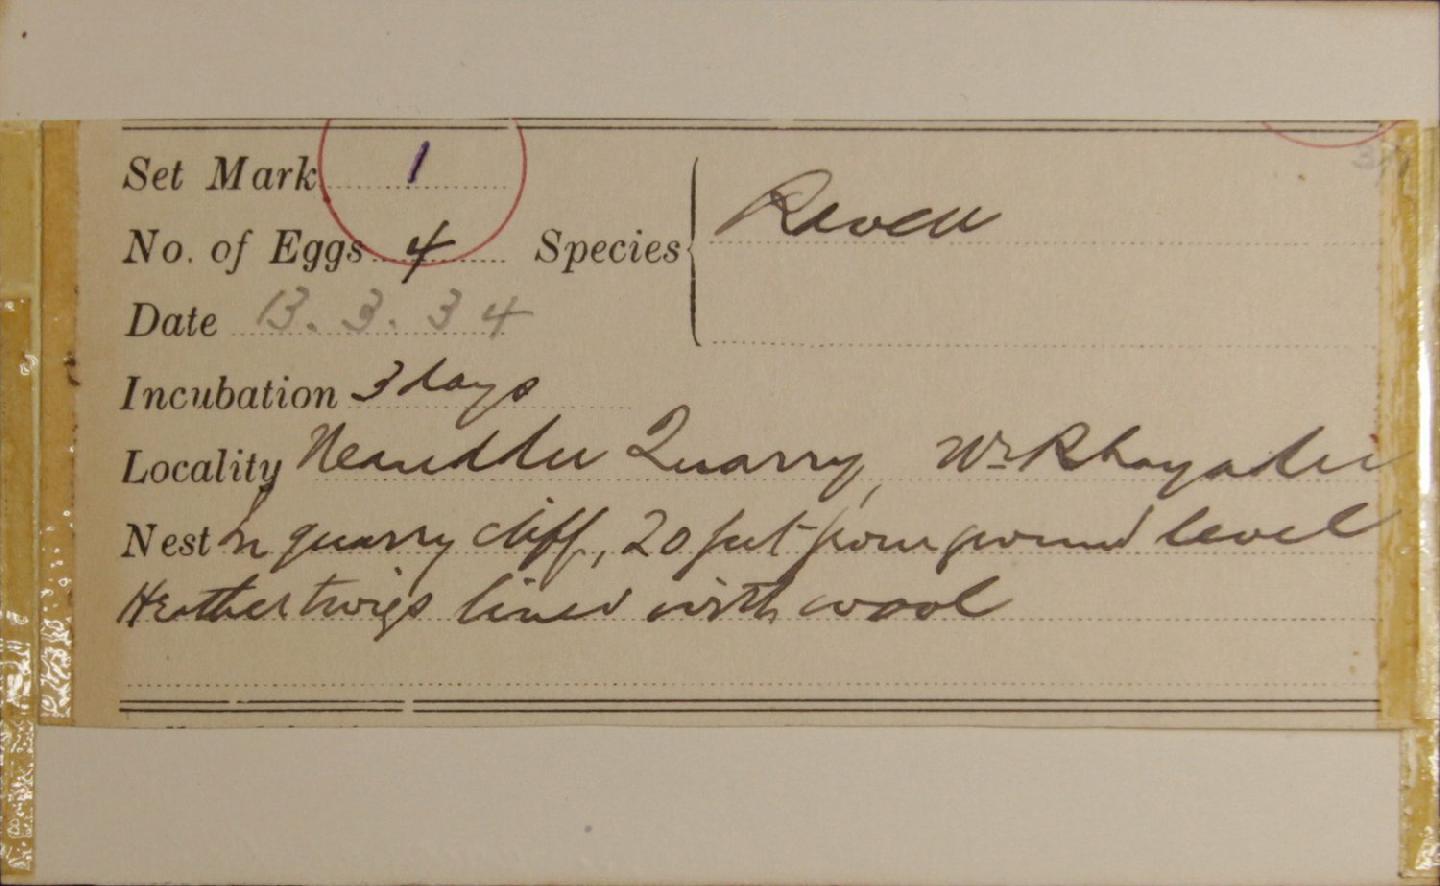 Set Mark 1
No. of Eggs 4 Species Raven
Date 13.3.34
Incubation 3 days
Locality Quarry, Nr Rhayader
Nest In quarry cliff, 20 feet from ground level
Heather twigs lined with wool